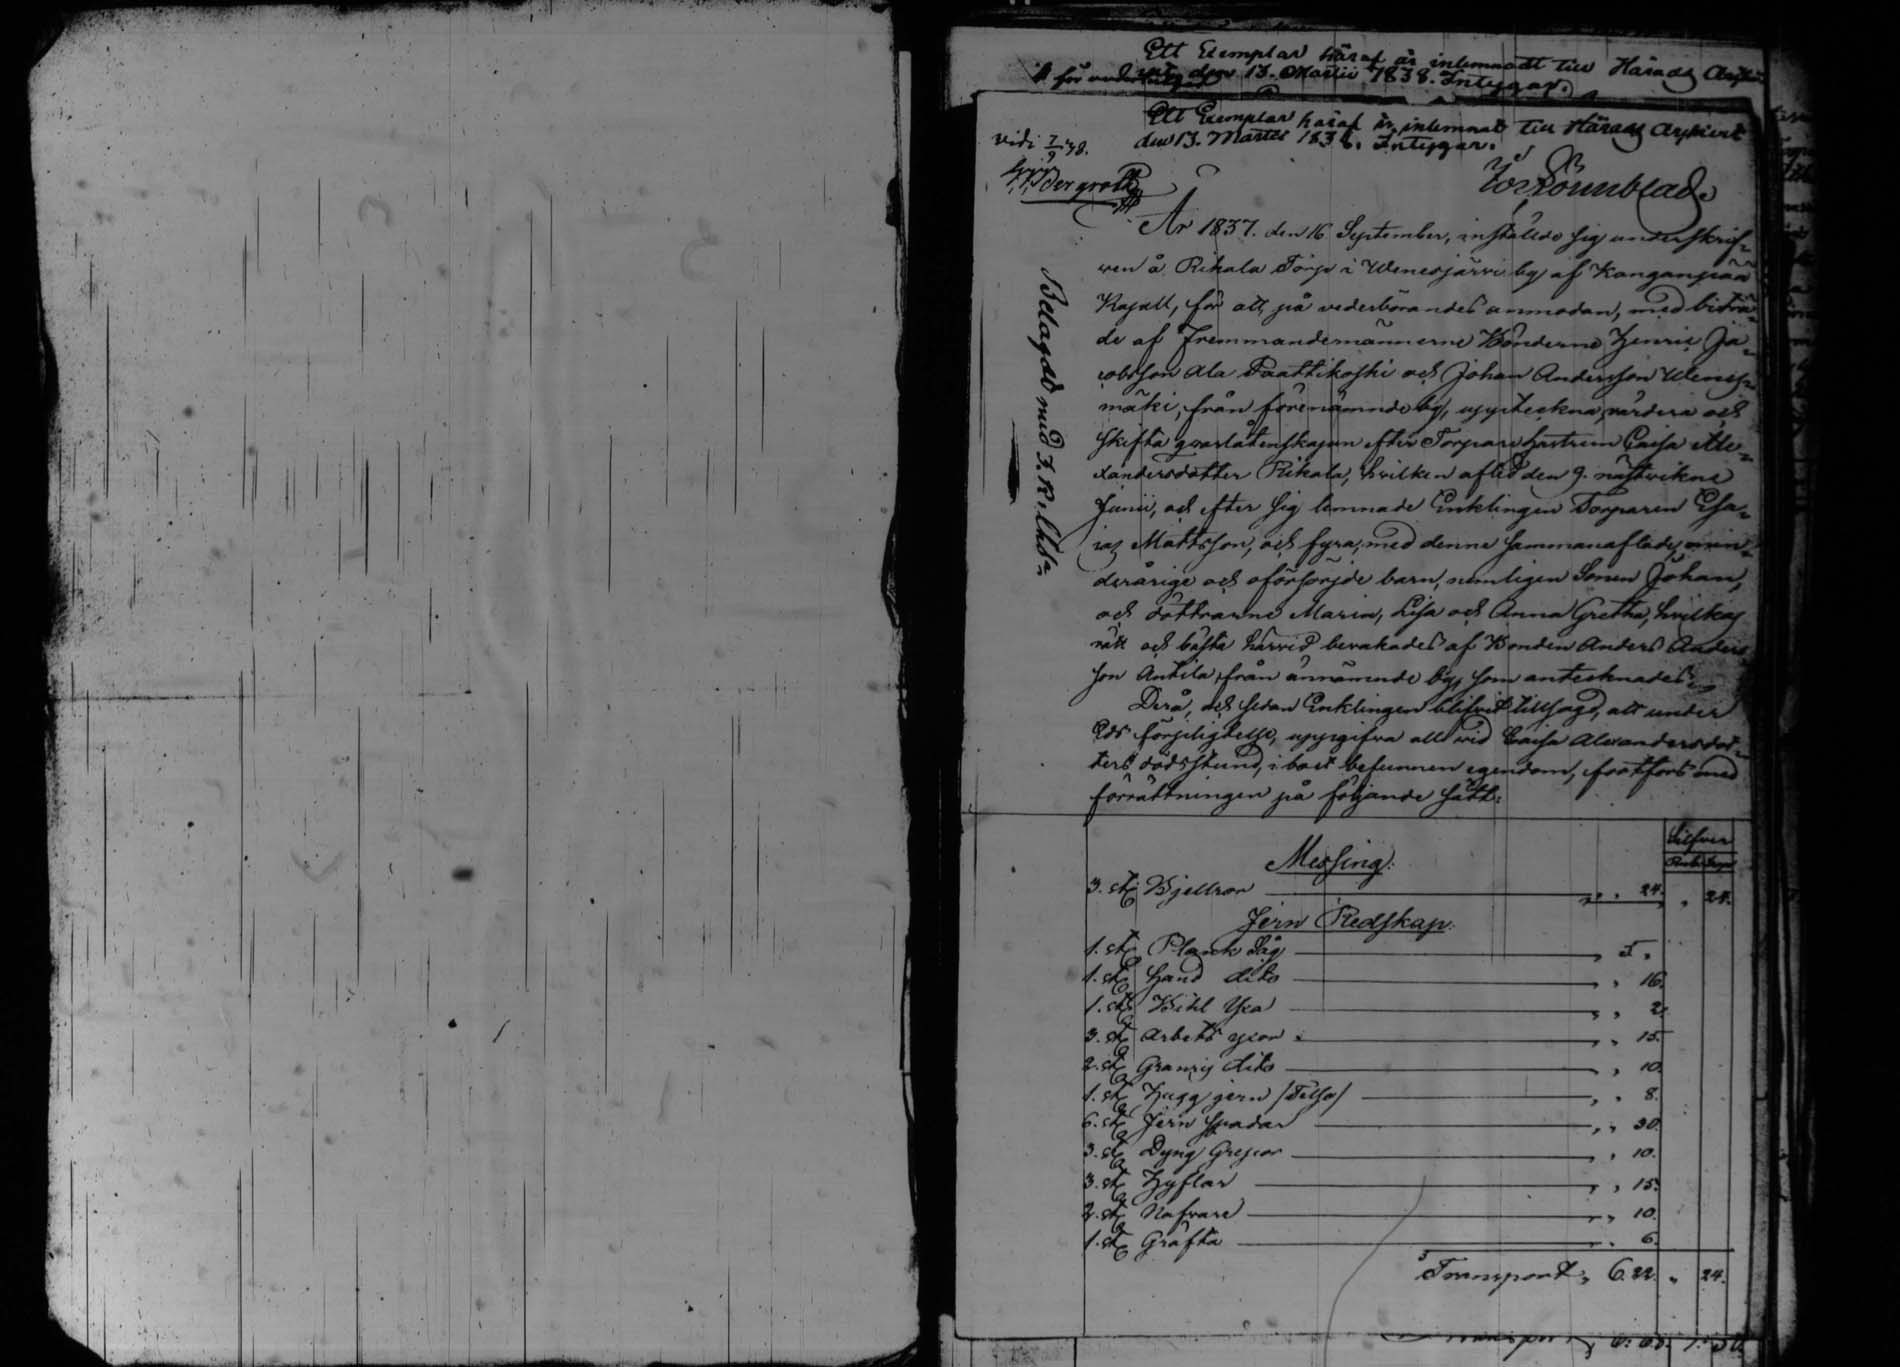 Ett Exemplar häraf är inlemnadt till Härads
den 13. Martii 1838. Intygar.
Ett Exemplar häraf är inlemnat till Härads Arkivet
den 13. Martii 1838. Intygar.
Vidi 7/9 38.
Bergroth
Rönnblad
År 1837. den 16 September, instälde sig underskrif-
ven å Rikala Torp i Wenesjärvi by af Kanganpää
Kapell, för att på vederbörandes anmodan, med biträ-
de af Fremmandemännerne Bönderne Henric Ja-
cobsson Ala Paattikoski och Johan Andersson Wenes-
mäki, från förenämnde by, uppteckna, värdera och
skifta qvarlåtenskapen efter Torpare hustrun Caisa Ale-
xandersdotter Rikala, hvilken afled den 9. nästvikne
Junii, och efter sig lemnade Enklingen Torparen Esa-
ias Mattsson, och fyra, med denne sammanaflade, min-
derårige och oförsörjde barn, nemligen Sonen Johan,
och döttrarne Maria, Lisa och Anna Gretha, hvilkas
rätt och bästa härvid bevakades af Bonden Anders Anders
son Antila från ännämnde by, som antecknades.
Derå, och sedan Enklingen blifvit tillsagd, att under
Eds förpligtelse, uppgifva allt vid Caisa Alexandersdot-
ters dödsstund, i boet befunnen egendom, fortfors med
förrättningen på följande sätt:
Belagdt med
Silfver
Rub. Kop
Messing.
3. st Bjellror " " 24. " 24.
Jern Redskap.
1. st Plank Såg "
1. st Hand dito " " 16.
1. st Bihl Yxa " " 2
3. st Arbets yxor " " 15.
2. st dito " " 10.
1. st Hugg jern " " 8.
6. st Jern Spadar " " 30.
3. st Dyng Grepor " " 10.
3. st Hyflar " " 15.
2. st Nafvare " " 10.
1. st Gräfta " " 6.
Transport " 6.22. " 24.